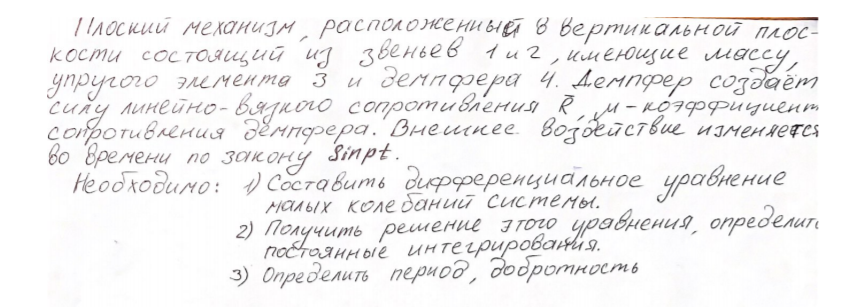 Плоский механизм, расположенный в вертикальной плос-
кости состоящий из звеньев 1 и 2, имеющие массу,
упругого элемента 3 и демпфера 4. Демпфер создаёт
силу линейно-вязкого сопротивления R̄, μ-коэффициент
сопротивления демпфера. Внешнее воздействие изменяется
во времени по закону Sinpt.
Необходимо: 1) Составить дифференциальное уравнение
малых колебаний системы.
2) Получить решение этого уравнения, определить
постоянные интегрирования.
3) Определить период, добротность